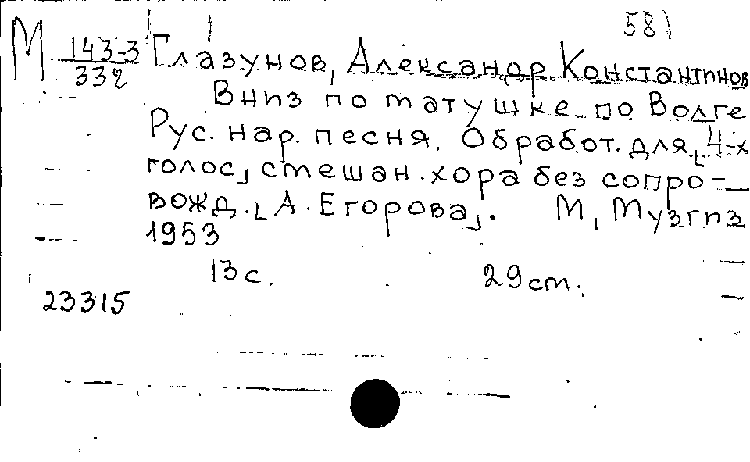 58)
М 143-3/332 Глазунов, Александр Константинов
Вниз по матушке по Волге
Рус. нар. песня. Обработ. для [4-х
голос] смешан. хора без сопро-
вожд. [А. Егорова]. М, Музгиз
1953
13 с. 29 см.
23315